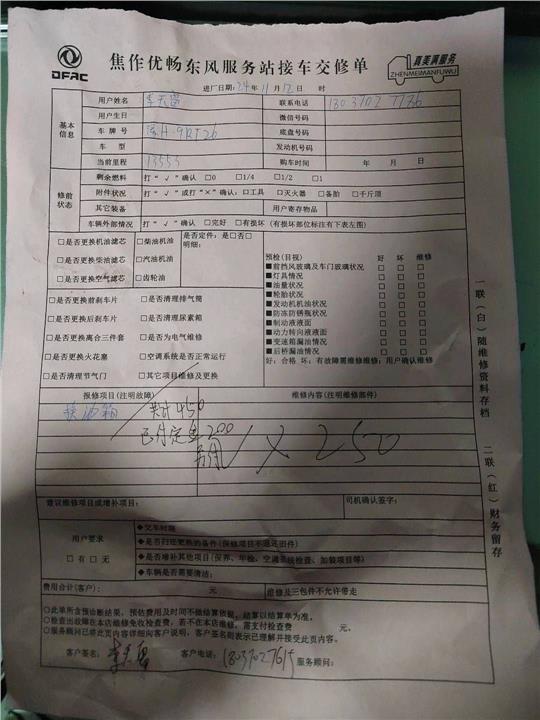 DFAC
焦作优畅东风服务站接车交修单
真美满服务
ZHENMEIMANFUWU
进厂日期:24年11月12日 时
基本信息
用户姓名 联系电话
用户生日 微信号码
车牌号 底盘号码
车型 发动机号码
当前里程 13553 购车时间 年 月 日
修前状态
剩余燃料 打“√”确认 □0 □1/4 □1/2 □1
附件状况 打“√”或打“×”确认:□工具 □灭火器 □备胎 □千斤顶
其它装备 用户寄存物品
车辆外部情况 打“√”确认 □完好 □有损坏(有损坏部位标注有下表左图)
□是否更换机油滤芯 □柴油机油 是否定件:是□否□
明细:
□是否更换柴油滤芯 □汽油机油
□是否更换空气滤芯 □齿轮油
预检(目视) 好 坏 维修
■前挡风玻璃及车门玻璃状况 □ □ □
■灯具情况 □ □ □
■油量状况 □ □ □
■轮胎状况 □ □ □
■发动机机油状况 □ □ □
■防冻防锈瓶状况 □ □ □
■制动液液面 □ □ □
■动力转向液液面 □ □ □
■变速箱漏油情况 □ □ □
■后桥漏油情况 □ □ □
好:合格 坏:有故障需维修维修:用户确认维修
□是否更换前刹车片 □是否清理排气筒
□是否更换后刹车片 □是否清理尿素箱
□是否更换离合三件套 □是否为电气维修
□是否更换火花塞 □空调系统是否正常运行
□是否清理节气门 □其它项目维修及更换
报修项目(注明故障) 维修内容(注明维修部件)
换油箱
共计450
已付定金200
×250
建议维修项目或增补项目: 司机确认签字:
用户要求
□有 □无
◆交车时期
◆是否归还更换的备件(保修项目不退还旧件)
◆是否增补其他项目(保养、年检、空调系统检查、加装项目等)
◆车辆是否需要清洁:
费用合计(客户): 元 维修及三包件不允许带走
○此单所含预诊断结果、预估费用及时间不做结算依据,结算以结算单为准。
○检查出故障在本店维修免收检查费,若不在本店维修,需支付检查费 元。
○服务顾问已将此页内容详细向客户说明,客户签名则表示已理解并接受此页内容。
客户签名: 客户电话: 服务顾问:
一联(白)随维修资料存档
二联(红)财务留存